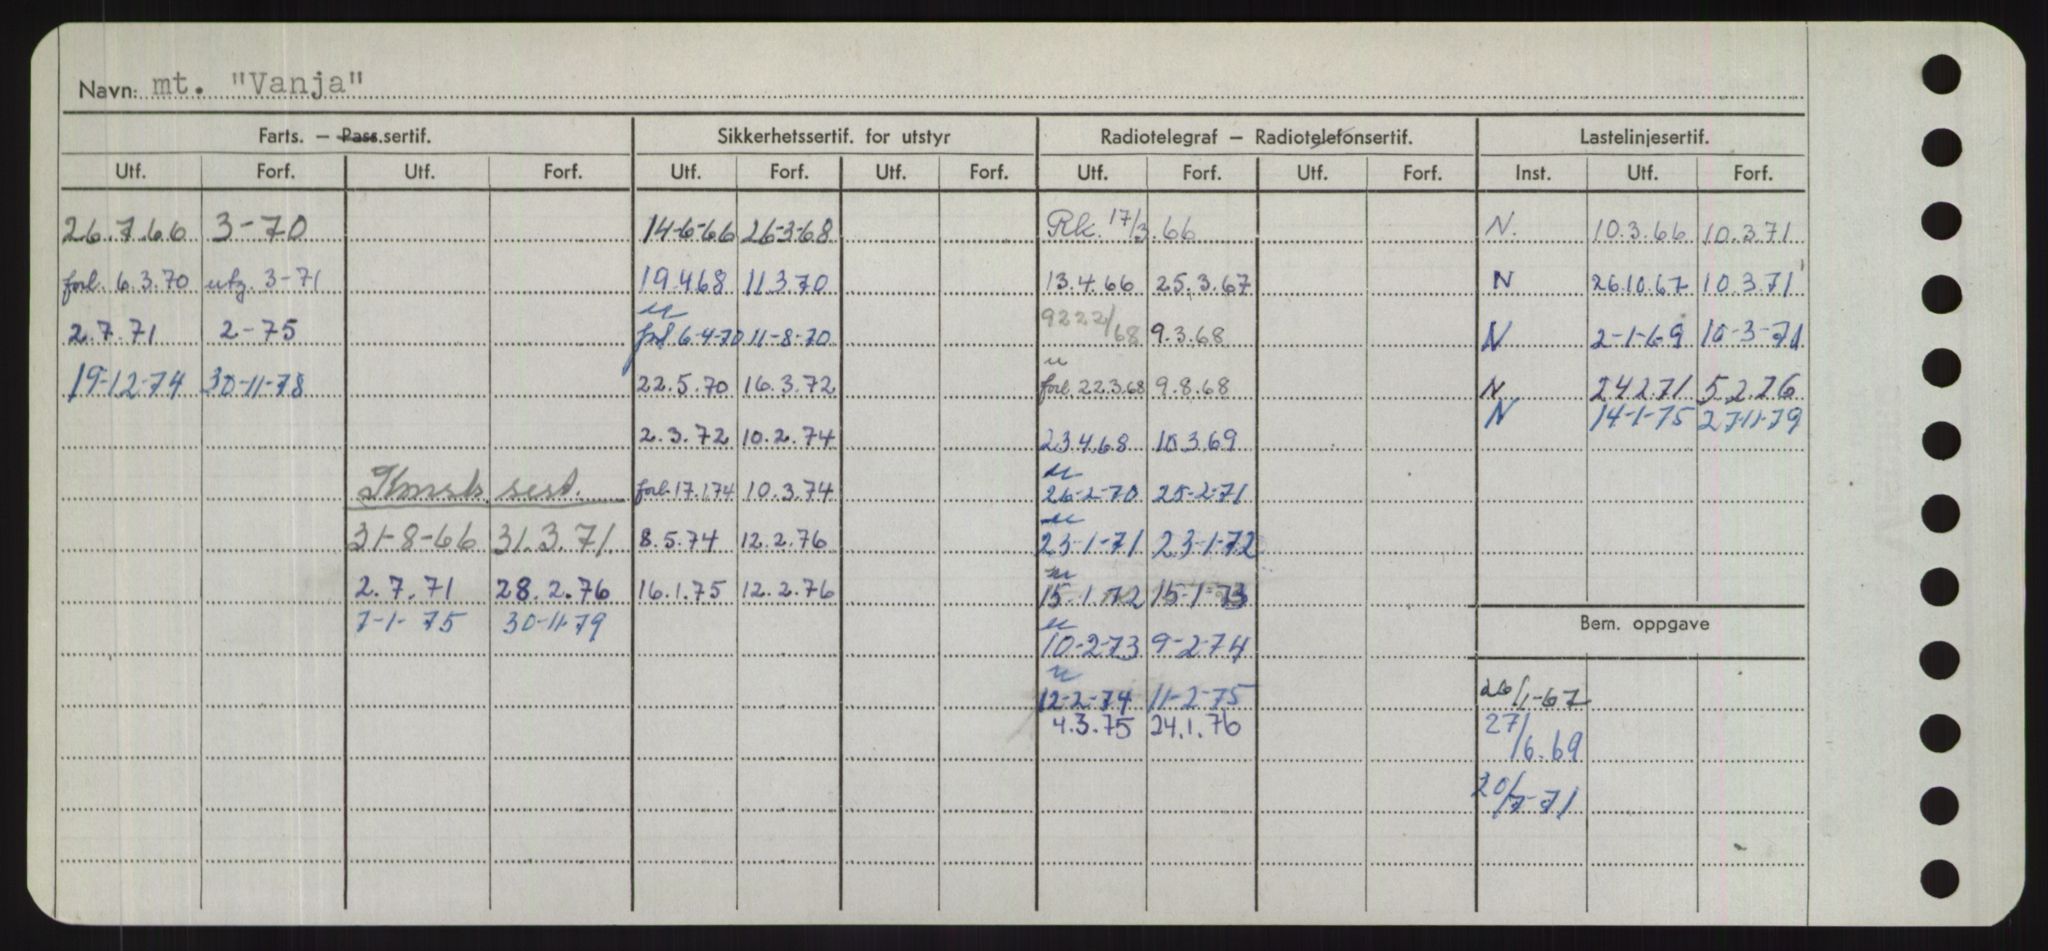 Navn: mt. "Vanja"
Farts. — Pass.sertif. Sikkerhetssertif. for utstyr Radiotelegraf — Radiotelefonsertif. Lastelinjesertif.
Utf. Forf. Utf. Forf. Utf. Forf. Utf. Forf. Utf. Forf. Utf. Forf. Inst. Utf. Forf.
26.7.66 3-70 14-6-66 26-3-68 Rk. 17/3.66 N. 10.3.66 10.3.71
forl. 6.3.70 utg. 3-71 19.4.68 11.3.70 13.4.66 25.3.67 N 26.10.67 10.3.71
2.7.71 2-75 forl 6-4-70 11-8-70 9222/68 9.3.68 N 2-1-69 10-3-71
19-12-74 30-11-78 22.5.70 16.3.72 forl. 22.3.68 9.8.68 N 24.2.71 5.2.76
N 14-1-75 27-11-79
2.3.72 10.2.74 23.4.68 10.3.69
Kmsk. sert. forl. 17.1.74 10.3.74 26-2-70 25-2-71
31-8-66 31.3.71 8.5.74 12.2.76 23-1-71 23-1-72
2.7.71 28.2.76 16.1.75 12.2.76 15-1-72 15-1-73
7-1-75 30-11-79 Bem. oppgave
10-2-73 9-2-74
12-2-74 11-2-75 26/1-67
4.3.75 24.1.76 27/6.69
20/7-71